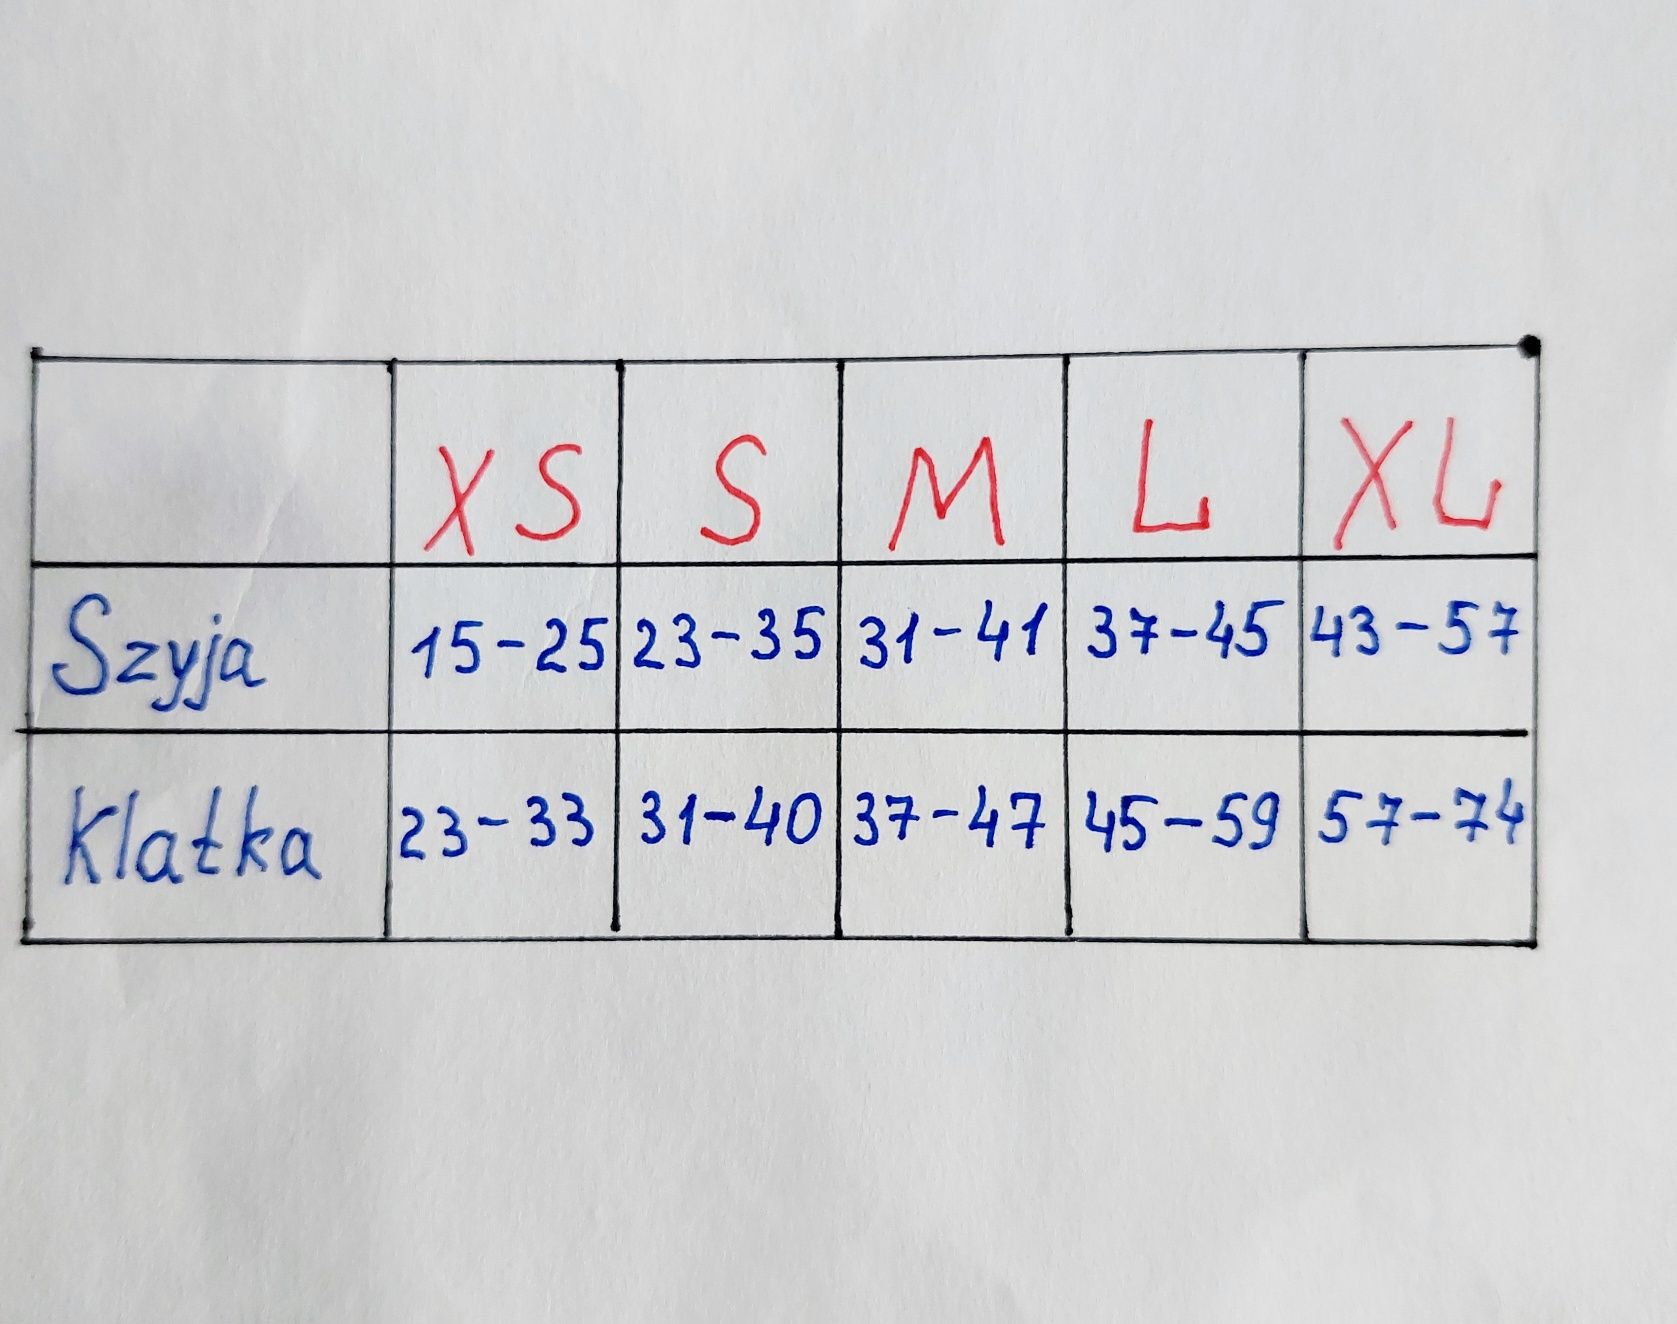 XS S M L XL
Szyja 15-25 23-35 31-41 37-45 43-57
Klatka 23-33 31-40 37-47 45-59 57-74